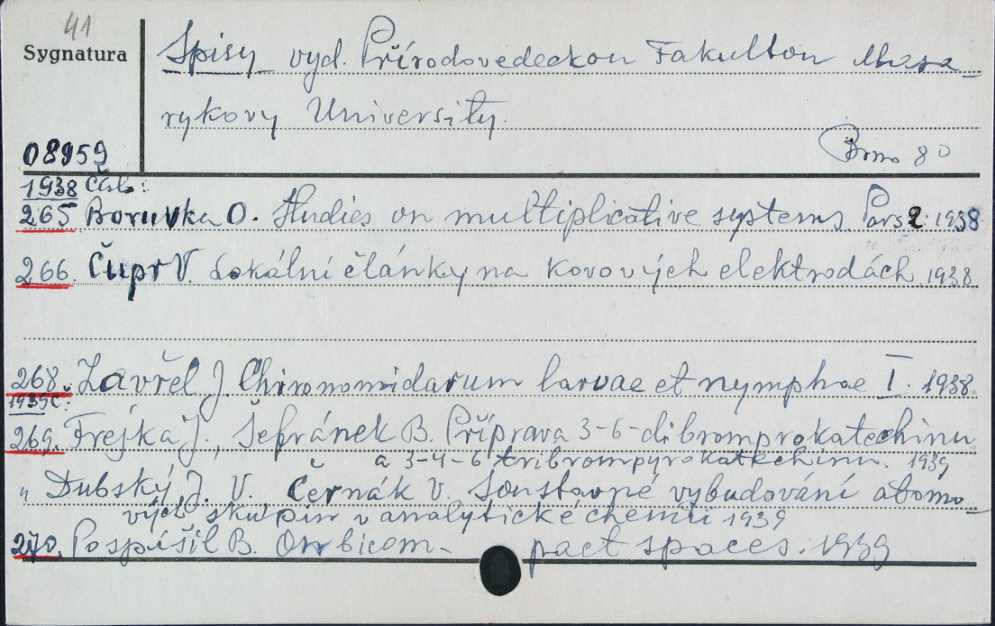 41
Sygnatura
Spisy vyd. Přírodovedeckou Fakultou Masa-
rykovy University.
08959
Brno 8°
1938 čís:
265 Boruvka O. Studies on multiplicative systems Pars 2. 1938
266. Čupr V. Lokální články na kovových elektrodách 1938
268. Zavřel J. Chironomidarum larvae et nymphae I. 1938.
1939 č:
269. Frejka J., Šefránek B. Příprava 3-6-dibrompyrokatechinu
a 3-4-6 tribrompyrokatechinu. 1939
" Dubský J. V. Černák V. Soustavné vybudování atomo-
vých skupin v analytické chemii 1939
270. Pospíšil B. On bicom- pact spaces. 1939